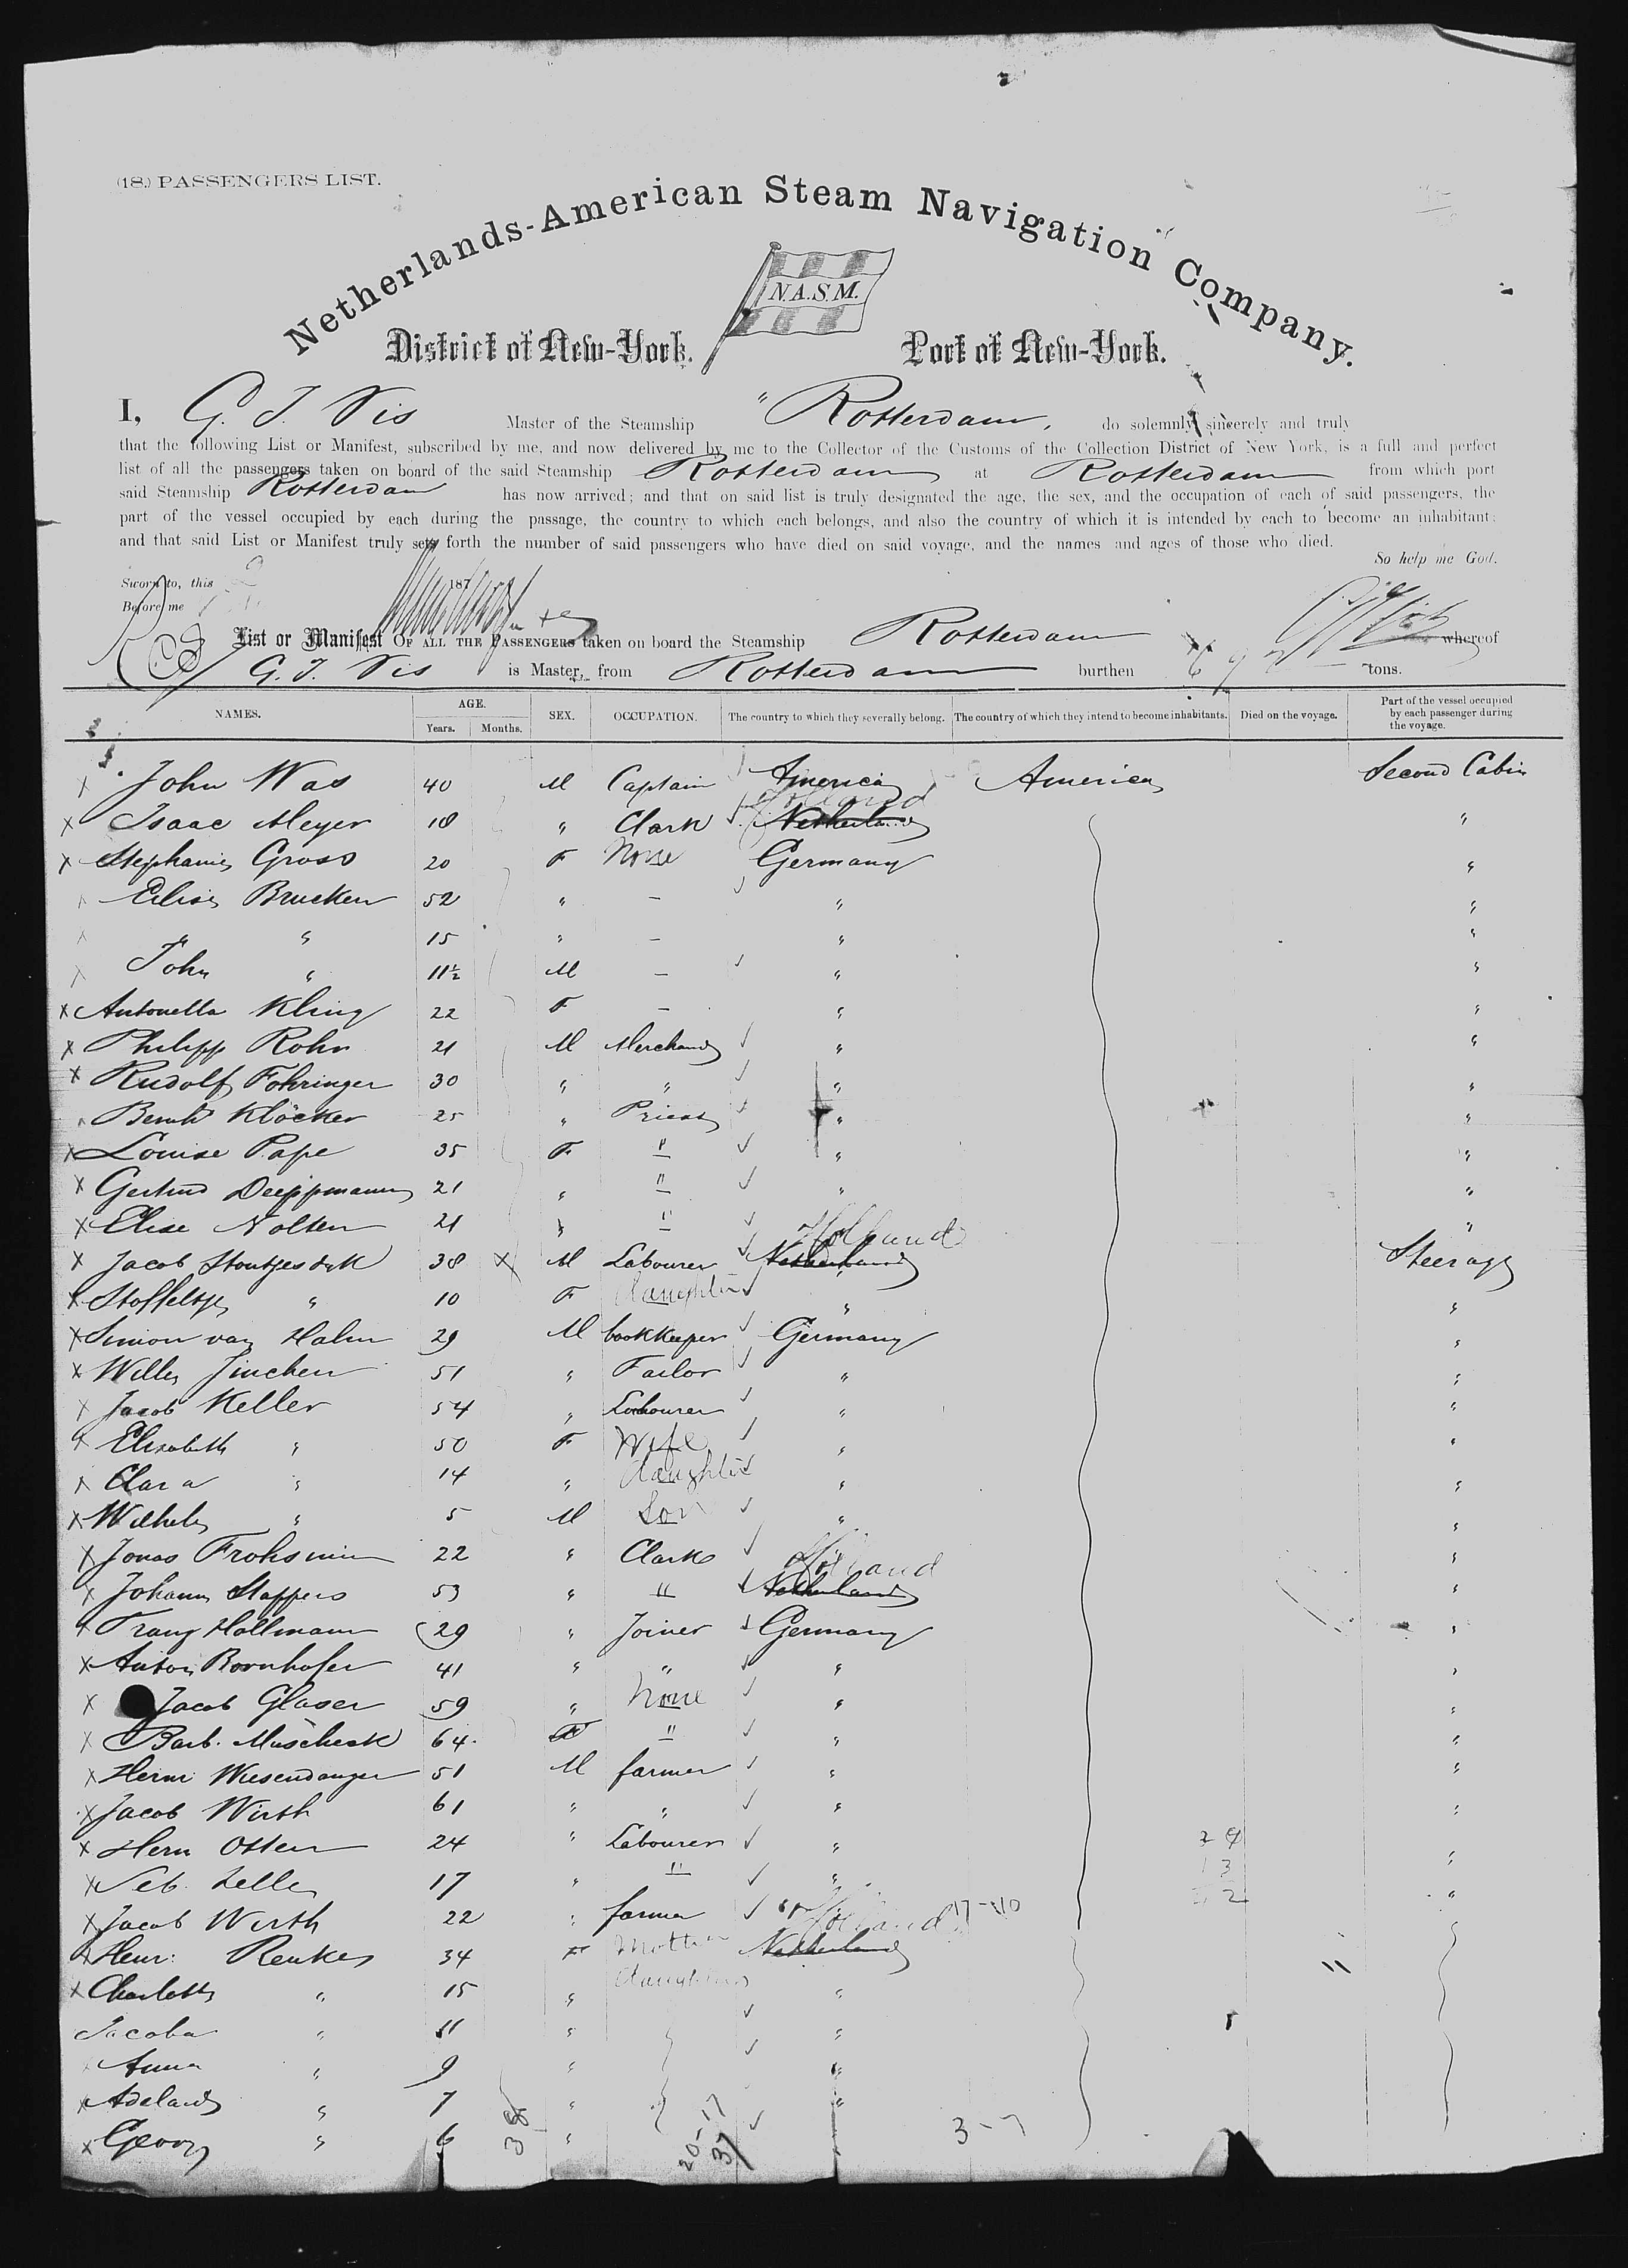 (18.) PASSENGERS LIST.
Netherlands-American Steam Navigation Company.
N.A.S.M.
District of New-York. Port of New-York.
I, G. J. Vis Master of the Steamship " Rotterdam, do solemnly sincerely and truly
that the following List or Manifest, subscribed by me, and now delivered by me to the Collector of the Customs of the Collection District of New York, is a full and perfect
list of all the passengers taken on board of the said Steamship Rotterdam at Rotterdam from which port
said Steamship Rotterdam has now arrived; and that on said list is truly designated the age, the sex, and the occupation of each of said passengers, the
part of the vessel occupied by each during the passage, the country to which each belongs, and also the country of which it is intended by each to become an inhabitant;
and that said List or Manifest truly sets forth the number of said passengers who have died on said voyage, and the names and ages of those who died.
So help me God.
Sworn to, this 2 187
Before me
List or Manifest OF ALL THE PASSENGERS taken on board the Steamship Rotterdam whereof
G. J. Vis is Master, from Rotterdam burthen tons.
NAMES. AGE. Years. Months. SEX. OCCUPATION. The country to which they severally belong. The country of which they intend to become inhabitants. Died on the voyage. Part of the vessel occupied by each passenger during the voyage.
x John Was 40 M Captain America America Second Cabin
Holland
x Isaac Meyer 18 " Clark Netherland "
x Stephanie Gross 20 F None Germany "
Elise Brucken 52 " - " "
" " 15 " - " "
John " 11½ M - " "
x Antonetta Kling 22 F - " "
x Philipp Rohr 21 M Merchand " "
x Rudolf Fohringer 30 " " " "
Bernh Klöcker 25 " Priest " "
x Louise Pape 35 F " " "
x Gertrud Deippmann 21 " " " "
x Elise Nolten 21 " " Holland "
x Jacob Stoutjesdyk 38 x M Labourer Netherland Steerage
x Stoffeltje " 10 F daughter " "
x Simon van Halm 29 M bookkeeper Germany "
x Willy Jinchen 51 " Tailor " "
x Jacob Keller 54 " Labourer " "
x Elisabeth " 50 F Wife " "
x Clara " 14 " daughter " "
x Wilhelm " 5 M Son " "
x Jonas Frohsinn 22 " Clark "
Holland
x Johann Stappers 53 " " Netherland "
x Franz Hollmann 29 " Joiner Germany "
x Anton Bornhofer 41 " " " "
x Jacob Glaser 59 " None " "
x Barb. Muscheck 64 F " " "
x Herm Wiesendanger 51 M farmer " "
x Jacob Wirth 61 " " " "
x Herm Otten 24 " Labourer " "
x Seb. Zelle 17 " " " "
x Jacob Wirth 22 " farmer " "
Holland 17-10
x Henr: Reukes 34 F Mother Netherland
x Charlotte " 15 " daughter "
Jacoba " 11 " "
Anna " 9 " "
x Adelaid " 7 " "
x Georg " 6 "
38
20-17
37
3-7